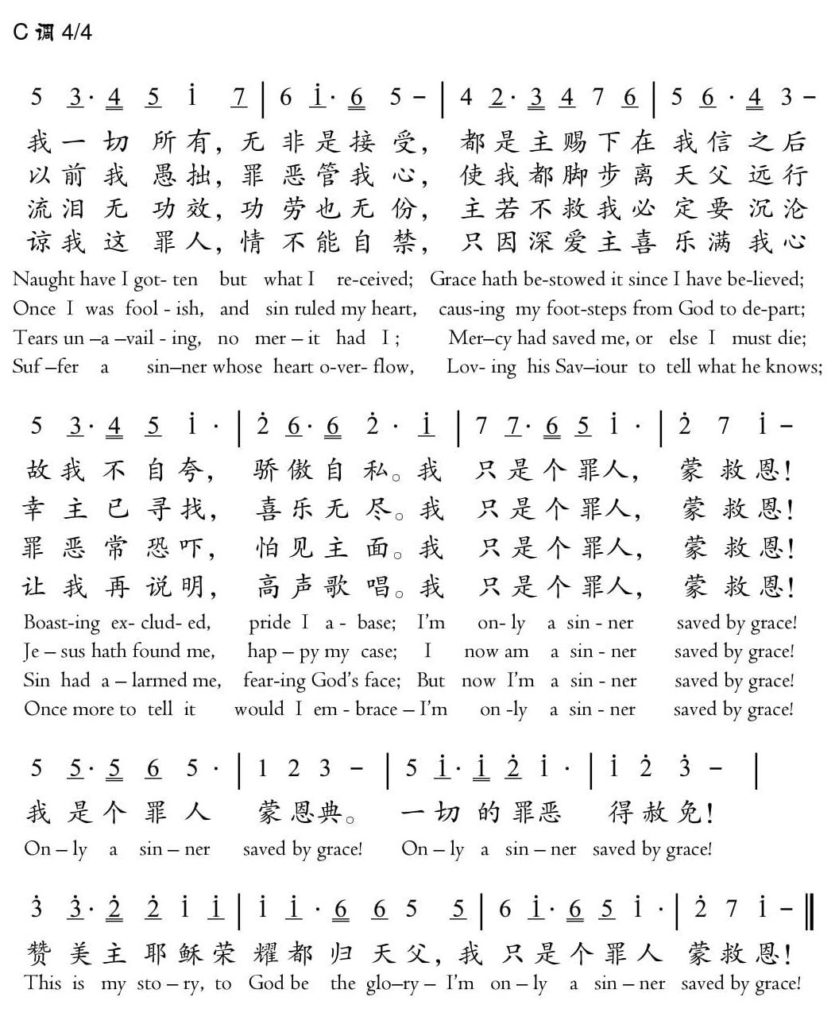 C 调 4/4
5 3· 4 5 i̇ 7 | 6 i̇· 6 5 – | 4 2· 3 4 7 6 | 5 6 · 4 3 –
我 一 切 所 有, 无 非 是 接 受, 都 是 主 赐 下 在 我 信 之 后
以 前 我 愚 拙, 罪 恶 管 我 心, 使 我 都 脚 步 离 天 父 远 行
流 泪 无 功 效, 功 劳 也 无 份, 主 若 不 救 我 必 定 要 沉 沦
谅 我 这 罪 人, 情 不 能 自 禁, 只 因 深 爱 主 喜 乐 满 我 心
Naught have I got- ten but what I re-ceived; Grace hath be-stowed it since I have be-lieved;
Once I was fool - ish, and sin ruled my heart, caus-ing my foot-steps from God to de-part;
Tears un –a –vail - ing, no mer – it had I ; Mer–cy had saved me, or else I must die;
Suf –fer a sin–ner whose heart o-ver- flow, Lov- ing his Sav–iour to tell what he knows;
5 3· 4 5 i̇ · | 2̇ 6· 6 2̇ · i̇ | 7 7· 6 5 i̇ · | 2̇ 7 i̇ –
故 我 不 自 夸, 骄 傲 自 私。我 只 是 个 罪 人, 蒙 救 恩!
幸 主 已 寻 找, 喜 乐 无 尽。我 只 是 个 罪 人, 蒙 救 恩!
罪 恶 常 恐 吓, 怕 见 主 面。我 只 是 个 罪 人, 蒙 救 恩!
让 我 再 说 明, 高 声 歌 唱。我 只 是 个 罪 人, 蒙 救 恩!
Boast-ing ex- clud- ed, pride I a - base; I'm on- ly a sin - ner saved by grace!
Je – sus hath found me, hap – py my case; I now am a sin - ner saved by grace!
Sin had a – larmed me, fear-ing God's face; But now I'm a sin - ner saved by grace!
Once more to tell it would I em - brace – I'm on -ly a sin - ner saved by grace!
5 5· 5 6 5 · | 1 2 3 – | 5 i̇· i̇ 2̇ i̇ · | i̇ 2̇ 3̇ – |
我 是 个 罪 人 蒙 恩 典。 一 切 的 罪 恶 得 赦 免!
On – ly a sin – ner saved by grace! On – ly a sin – ner saved by grace!
3̇ 3̇· 2̇ 2̇ i̇ i̇ | i̇ i̇ · 6 6 5 5 | 6 i̇· 6 5 i̇ · | 2̇ 7 i̇ – ‖
赞 美 主 耶 稣 荣 耀 都 归 天 父, 我 只 是 个 罪 人 蒙 救 恩!
This is my sto – ry, to God be the glo–ry – I'm on – ly a sin – ner saved by grace!